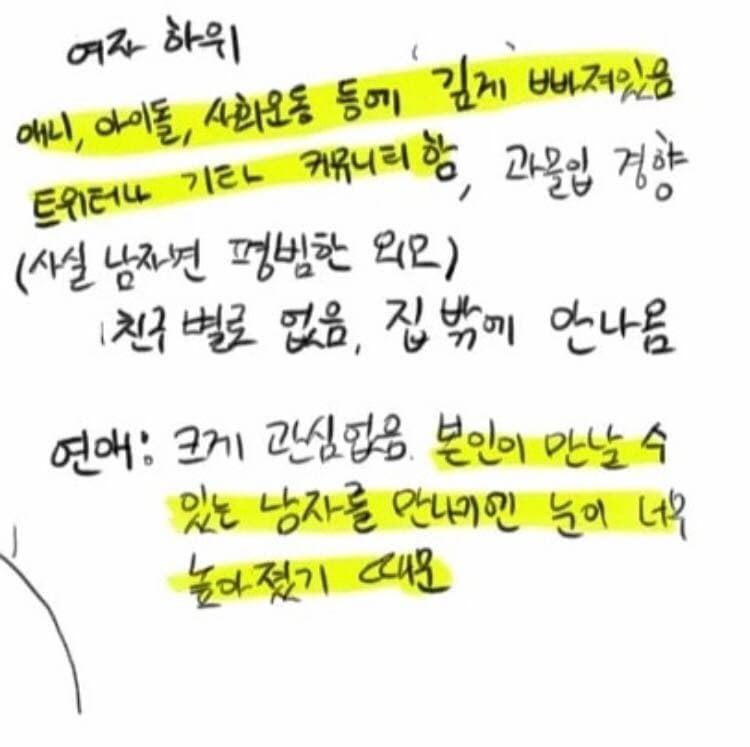 여자 하위
애니, 아이돌, 사회운동 등에 깊게 빠져있음
트위터나 기타 커뮤니티 함, 과몰입 경향
(사실 남자면 평범한 외모)
친구 별로 없음, 집 밖에 안나옴
연애: 크게 관심없음. 본인이 만날 수
있는 남자를 만나기엔 눈이 너무
높아졌기 때문